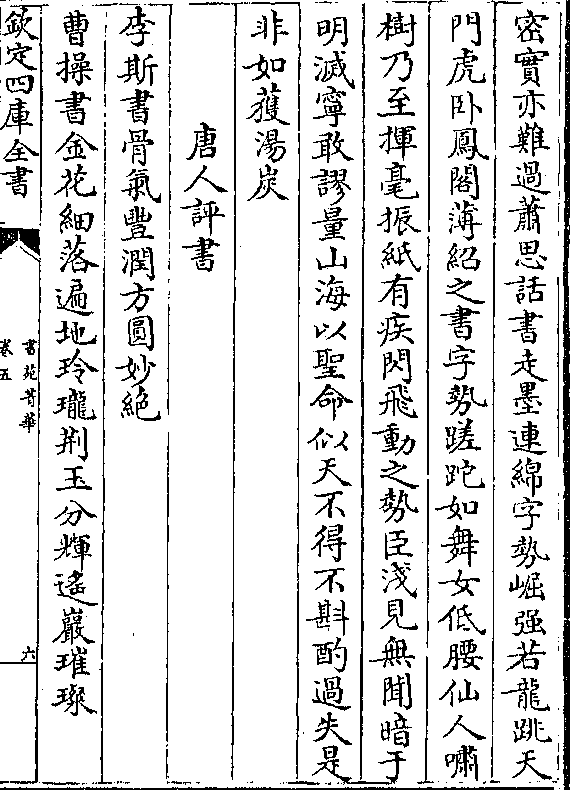 密實亦難過蕭思話書走墨連綿字勢崛强若龍跳天
門虎卧鳳閣薄紹之書字勢蹉跎如舞女低腰仙人嘯
樹乃至揮毫振紙有疾閃飛動之勢臣淺見無聞暗于
明滅寧敢謬量山海以聖命似天不得不斟酌過失是
非如獲湯炭
唐人評書
李斯書骨氣豐潤方圓妙絶
曹操書金花細落遍地玲瓏荆玉分輝遥巖璀璨
欽定四庫全書
書苑菁華
卷五
六